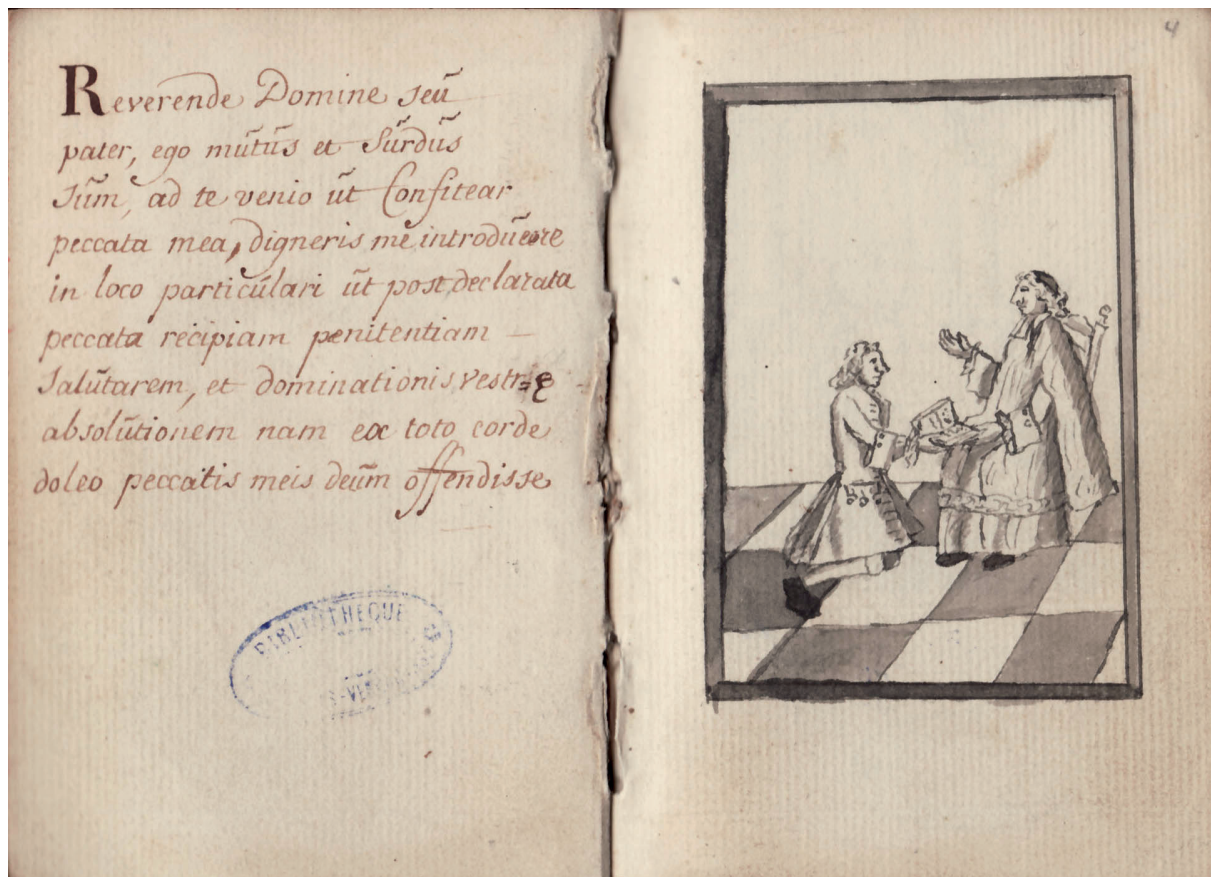 Reverende Domine seũ
pater, ego mũtũs et Sũrdũs
sũm, ad te venio ũt Confitear
peccata mea, digneris me introdũcere
in loco particũlari ũt post declarata
peccata recipiam penitentiam –
salũtarem, et dominationis vestr=æ
absolũtionem nam ex toto corde
doleo peccatis meis deũm offendisse
BIBLIOTHEQUE
4